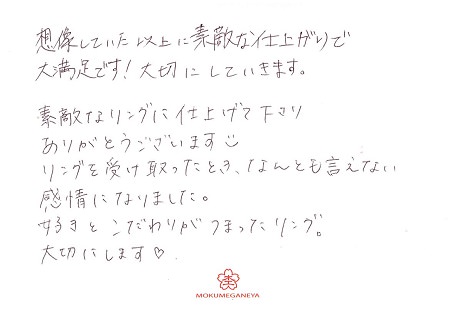 想像していた以上に素敵な仕上がりで
大満足です!大切にしていきます。
素敵なリングに仕上げて下さり
ありがとうございます☺
リングを受け取ったとき、なんとも言えない
感情になりました。
好きとこだわりがつまったリング。
大切にします♡
MOKUMEGANEYA